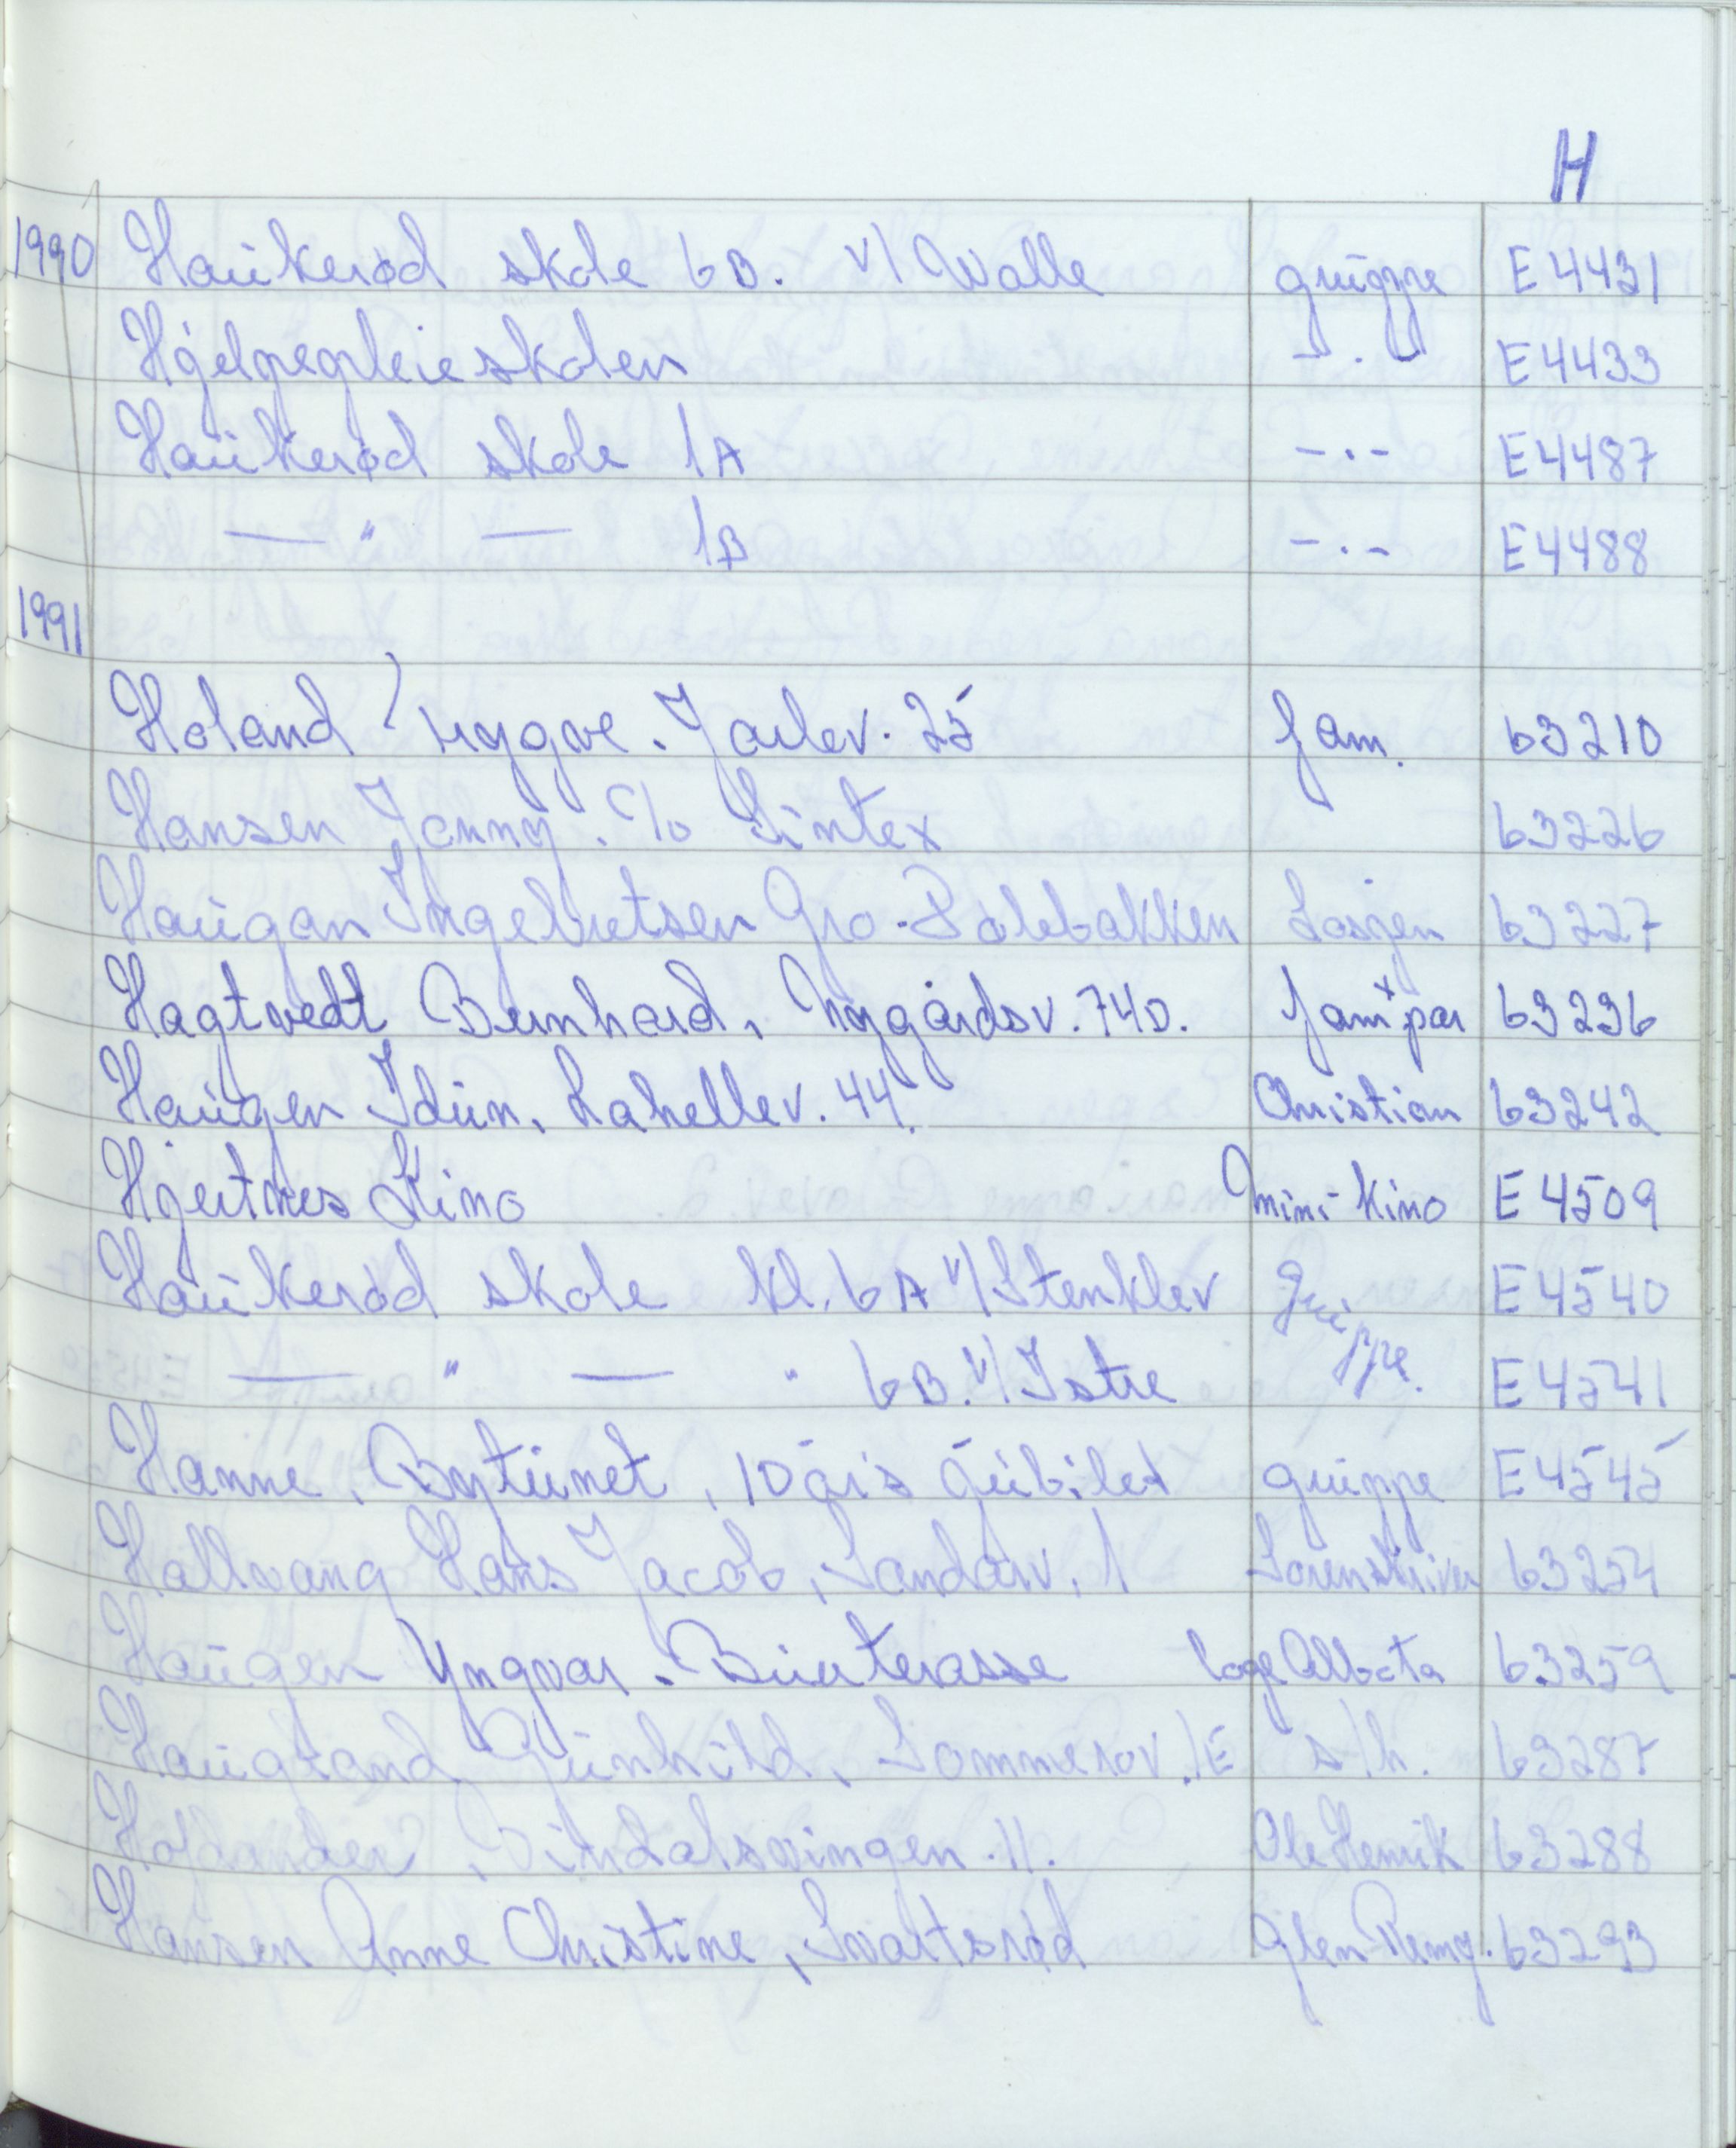 H
1990 Haukerød skole 6D. v/ Walle gruppe E4431
Hjelpepleieskolen - . - E4433
Haukerød skole 1A - . - E4487
— " — 1B - . - E4488
1991
Holand Trygve. Jarlev. 25 fam. 63210
Hansen Jonny. c/o Sintex 63226
Haugan Ingebretsen Gro. Solebakken 63227
Hagtvedt Bernhard, Nygårdsv. 74D. fam + par 63236
Haugen Idun, Lahellev. 44. Christian 63242
Hjertnes Kino Mini-Kino E4509
Haukerød skole kl. 6A v/ Stenklev Gruppe. E4540
— " — " 6B. v/ Istre E4541
Hanne, Bytunet, 10 års jubilet gruppe E4545
Hallvang Hans Jacob, Sandarv. 1 Sorenskriver 63254
Haugen Yngvar. Bueterasse loge 63259
Haugland Gunhild, Sommerov. 1E s/h. 63287
Vindalsvingen. 11. Ole Henrik 63288
Hansen Anne Christine, Svartsrød Glen Remy. 63293